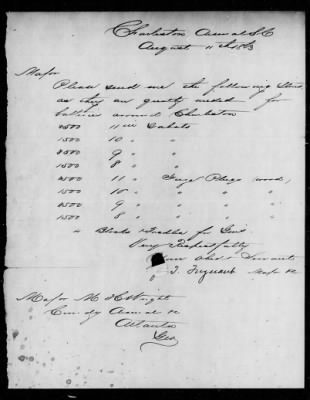 Charleston Arsenal SC
August 11th 1863
Major
Please send me the following
as they are greatly needed for
batteries around Charleston
2500 11 in Sabots
1500 10 " "
2500 9 " "
1500 8 " "
2500 11 " Fuze Plugs wood,
1500 10 " " "
2500 9 " " "
1500 8 " " "
for
Very Respectfully
Your Obdt Servant
Major
Major M H Wright
Comdg Arsenal
Atlanta
Geo